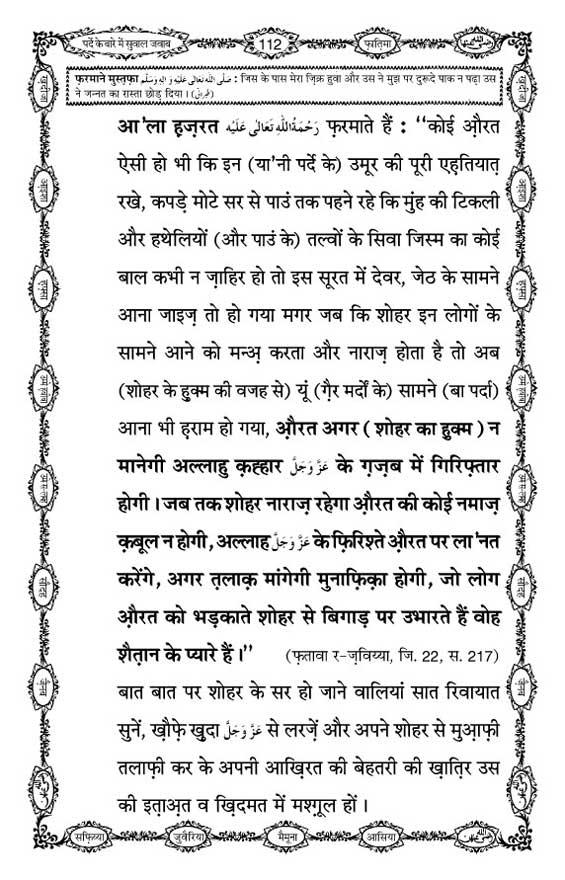 पर्दे के बारे में सुवाल जवाब
112
फ़ातिमा
फ़रमाने मुस्तफ़ा صَلَّى اللهُ تَعَالٰى عَلَيْهِ وَاٰلِهٖ وَسَلَّم : जिस के पास मेरा ज़िक्र हुवा और उस ने मुझ पर दुरूदे पाक न पढ़ा उस
ने जन्नत का रास्ता छोड़ दिया । (طبرانی)
आ'ला हज़रत رَحْمَةُ اللهِ تَعَالٰى عَلَيْه फ़रमाते हैं : ‘‘कोई औ़रत
ऐसी हो भी कि इन (या'नी पर्दे के) उमूर की पूरी एह़तियात़
रखे, कपड़े मोटे सर से पाउं तक पहने रहे कि मुंह की टिकली
और हथेलियों (और पाउं के) तल्वों के सिवा जिस्म का कोई
बाल कभी न ज़ाहिर हो तो इस सूरत में देवर, जेठ के सामने
आना जाइज़ तो हो गया मगर जब कि शोहर इन लोगों के
सामने आने को मन्अ़ करता और नाराज़ होता है तो अब
(शोहर के हुक्म की वजह से) यूं (ग़ैर मर्दों के) सामने (बा पर्दा)
आना भी ह़राम हो गया, औ़रत अगर ( शोहर का हुक्म ) न
मानेगी अल्लाहु क़ह्हार عَزَّ وَجَلَّ के ग़ज़ब में गिरिफ़्तार
होगी । जब तक शोहर नाराज़ रहेगा औ़रत की कोई नमाज़
क़बूल न होगी, अल्लाह عَزَّ وَجَلَّ के फ़िरिश्ते औ़रत पर ला'नत
करेंगे, अगर त़लाक़ मांगेगी मुनाफ़िक़ा होगी, जो लोग
औ़रत को भड़काते शोहर से बिगाड़ पर उभारते हैं वोह
शैत़ान के प्यारे हैं ।’’ (फ़तावा र-ज़विय्या, जि. 22, स. 217)
बात बात पर शोहर के सर हो जाने वालियां सात रिवायात
सुनें, ख़ौफ़े ख़ुदा عَزَّ وَجَلَّ से लरज़ें और अपने शोहर से मुआ़फ़ी
तलाफ़ी कर के अपनी आख़िरत की बेहतरी की ख़ात़िर उस
की इत़ाअ़त व ख़िदमत में मश्ग़ूल हों ।
सफ़िय्या
जुवैरिया
मैमूना
आसिया